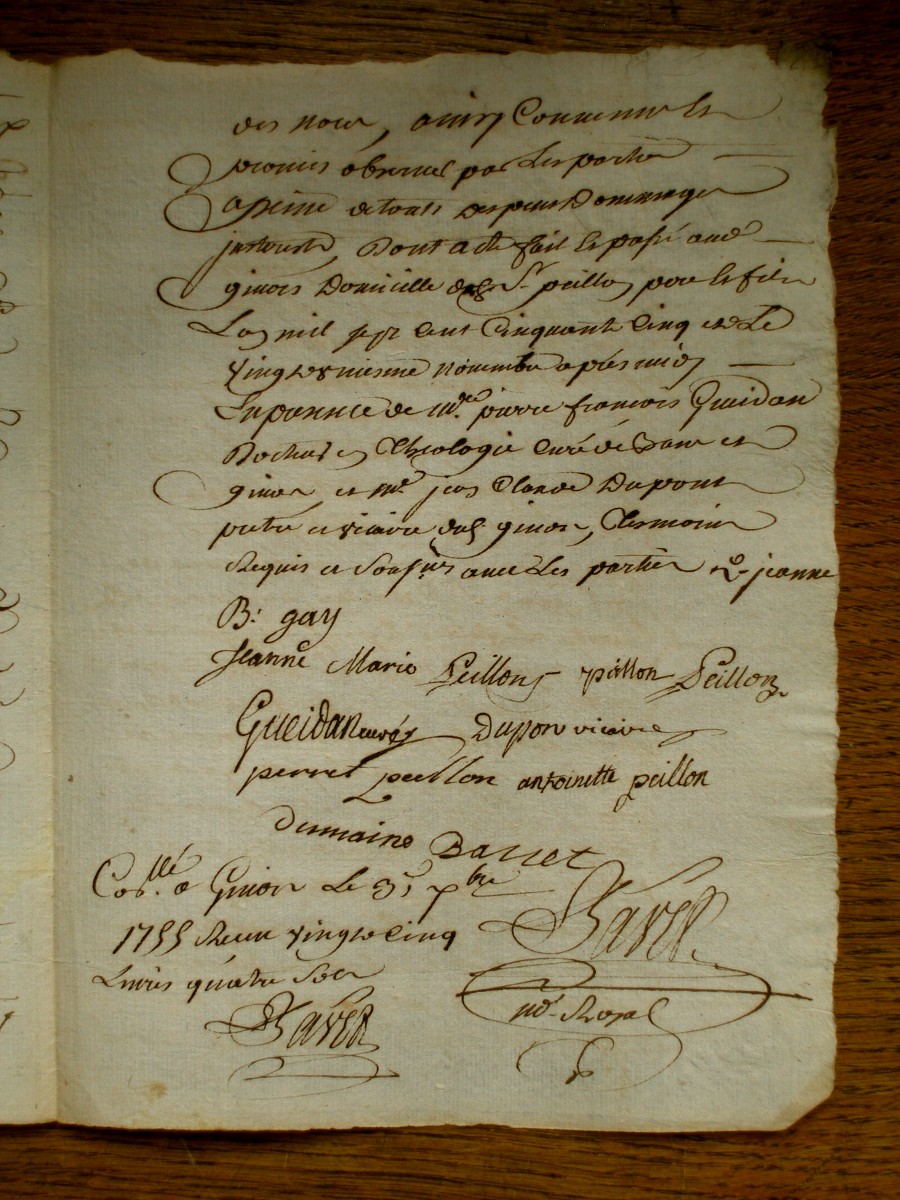 des noces, ainsy Convenu et
promis observer par Les parties
a peine de touts depens Dommages
Dont acte fait et passé aud
ginois Domicille dud Sr peillon pour Les filles
L'an mil sept cent Cinquante Cinq et Le
Vingt et uniesme novembre après midy
En presence de Mre pierre françois Gueidan
Docteur en Theologie Curé de et
et mre jean Claude Dupont
pretre et vicaire dud, Tesmoins
Requis et Soussignés avec Les parties jeanne
B: gay
Jeanne Marie Peillon peillon Peillon
Gueidan curé Dupon vicaire
perret peillon antoinette peillon
dumaine Barret
Conllé a Le 3
1755 Receu vingt et Cinq
Livres quatre Sols
Royal